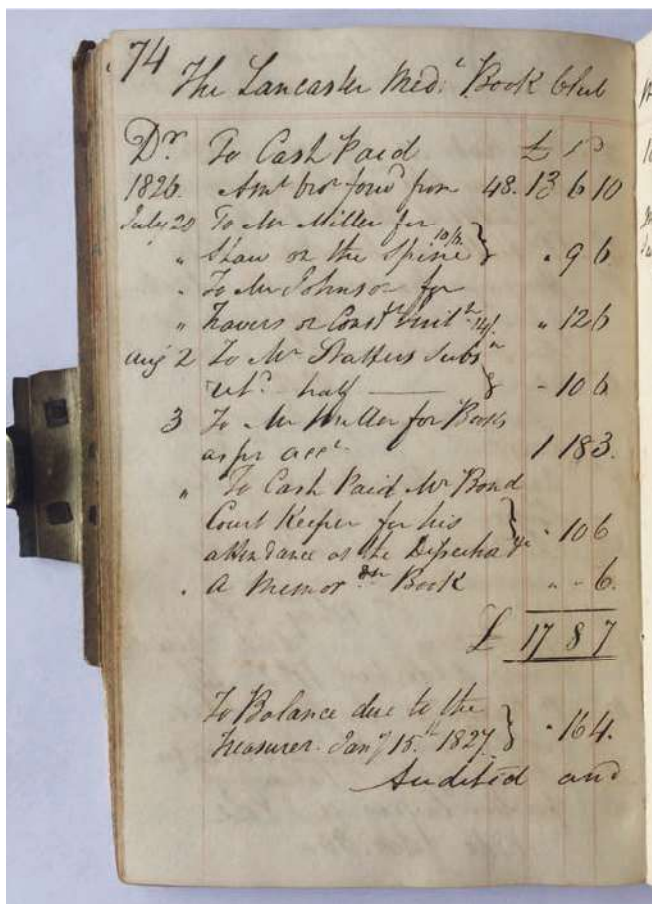 74
The Lancaster Med.l Book Club
Dr. To Cash Paid £ s D
1826. Amt bro' forwd from 48. 13 6 10
July 20 To Mr Miller for
" Shaw on the Spine 10/6 } " 9 6
" To Mr Johnson for
" Travers on Constl 14/. " 12 6
Aug 2 To Mr Subsn
half — } - 10 6
3 To Mr Miller for Books
as per acct. 1 18 3.
" To Cash Paid Mr Bond
Court Keeper for his
attendance at the &c } " 10 6
" A Memordm Book " " 6.
£ 17 8 7
To Balance due to the
Treasurer. Jany 15.th 1827. } " 16 4.
Audited and